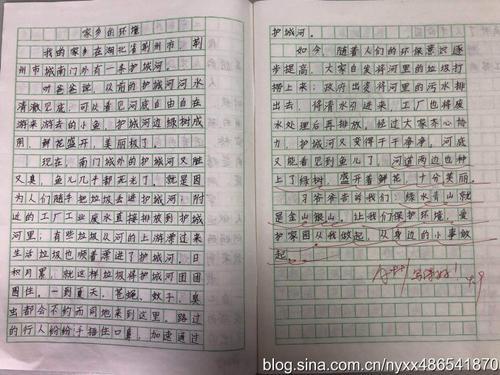 家乡的环境
我的家乡在湖北省荆州市，荆
州市城南门外有一条护城河。
听爸爸说，从前的护城河河水
清澈见底，可以看见河底自由自在
游来游去的小鱼，护城河边绿树成
阴，鲜花盛开，美丽极了。
现在，南门城外的护城河又脏
又臭，鱼儿几乎都死光了，就是因
为人们随手把垃圾丢进护城河；附
近的工厂工业废水直接排放到护城
河里；有些垃圾从河的上游漂过来
生活垃圾也顺着漂进了护城河，日
积月累，就这样垃圾将护城河团团
围住。一到夏天，苍蝇，蚊子，臭
虫都会不约而同地来到这里，路过
的行人纷纷手捂住口鼻，加速通过
护城河。
如今，随着人们的环保意识逐
步提高，大家自发将河里的垃圾打
捞上来；政府出资将河里的污水排
出去，将清水引进来，工厂也将废
水处理后再排放。经过大家齐心协
力，护城河又变得干干净净，河底
又能看见到鱼儿了，河道两边也种
上了绿树，盛开着鲜花，十分美丽
习爷爷告诉我们：绿水青山就
是金山银山。让我们保护环境，爱
护家园从我做起，从身边的小事做
起。
9
blog.sina.com.cn/nyxx486541870